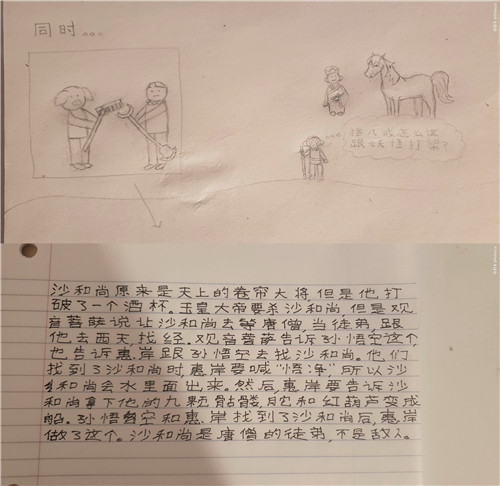 同时。。。
悟八戒怎么还
跟妖怪打架?
沙和尚原来是天上的卷帘大将,但是他打
破了一个酒杯。玉皇大帝要杀沙和尚,但是观
音菩萨说让沙和尚去等唐僧,当徒弟,跟
他去西天找经。观音菩萨告诉孙悟空这个
也告诉惠岸跟孙悟空去找沙和尚。他们
找到了沙和尚时,惠岸要喊“悟净”,所以沙
和尚会水里面出来。然后,惠岸要告诉沙
和尚拿下他的九颗骷髅,脱和红葫芦变成
船。孙悟空和惠岸找到了沙和尚后,惠岸
做了这个。沙和尚是唐僧的徒弟,不是敌人。